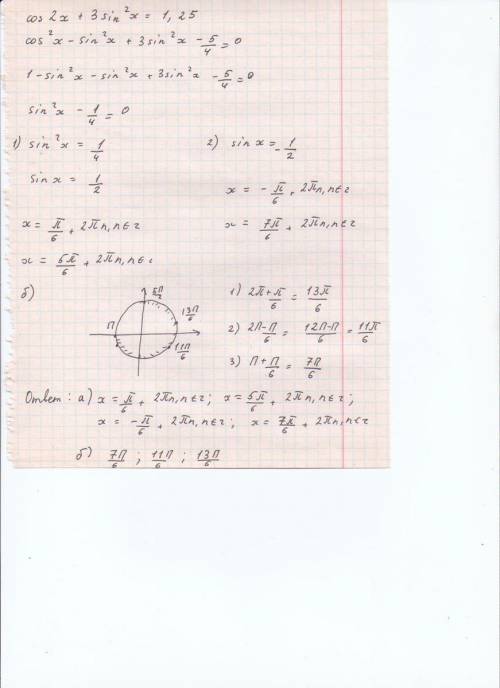 cos2x + 3sin²x = 1,25
cos²x - sin²x + 3sin²x - 5/4 = 0
1 - sin²x - sin²x + 3sin²x - 5/4 = 0
sin²x - 1/4 = 0
1) sin²x = 1/4
sin x = 1/2
x = π/6 + 2πn, n∈z
x = 5π/6 + 2πn, n∈z
2) sin x = -1/2
x = -π/6 + 2πn, n∈z
x = 7π/6 + 2πn, n∈z
б)
5П/2
13П/6
П
11П/6
1) 2π + π/6 = 13π/6
2) 2П - П/6 = 12П-П/6 = 11П/6
3) П + П/6 = 7П/6
Ответ: а) x = π/6 + 2πn, n∈z; x = 5π/6 + 2πn, n∈z;
x = -π/6 + 2πn, n∈z; x = 7π/6 + 2πn, n∈z
б) 7П/6; 11П/6; 13П/6